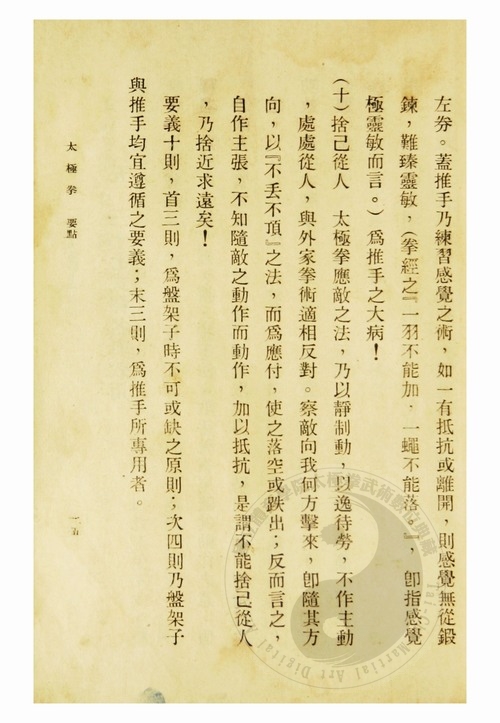 左券。蓋推手乃練習感覺之術，如一有抵抗或離開，則感覺無從鍛
鍊，難臻靈敏，(拳經之『一羽不能加，一蠅不能落。』，卽指感覺
極靈敏而言。)爲推手之大病！
(十)捨己從人　太極拳應敵之法，乃以靜制動，以逸待勞，不作主動
，處處從人，與外家拳術適相反對。察敵向我何方擊來，卽隨其方
向，以『不丟不頂』之法，而爲應付，使之落空或跌出；反而言之，
自作主張，不知隨敵之動作而動作，加以抵抗，是謂不能捨己從人
，乃捨近求遠矣！
要義十則，首三則，爲盤架子時不可或缺之原則；次四則乃盤架子
與推手均宜遵循之要義；末三則，爲推手所專用者。
太極拳　要點
一五